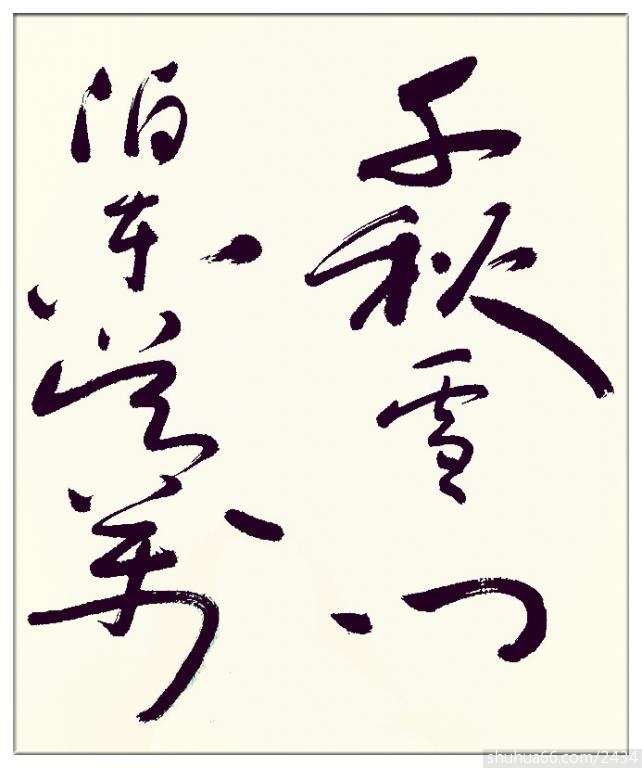 千秋雪门
泊東吴萬
shuhua66.com/2434